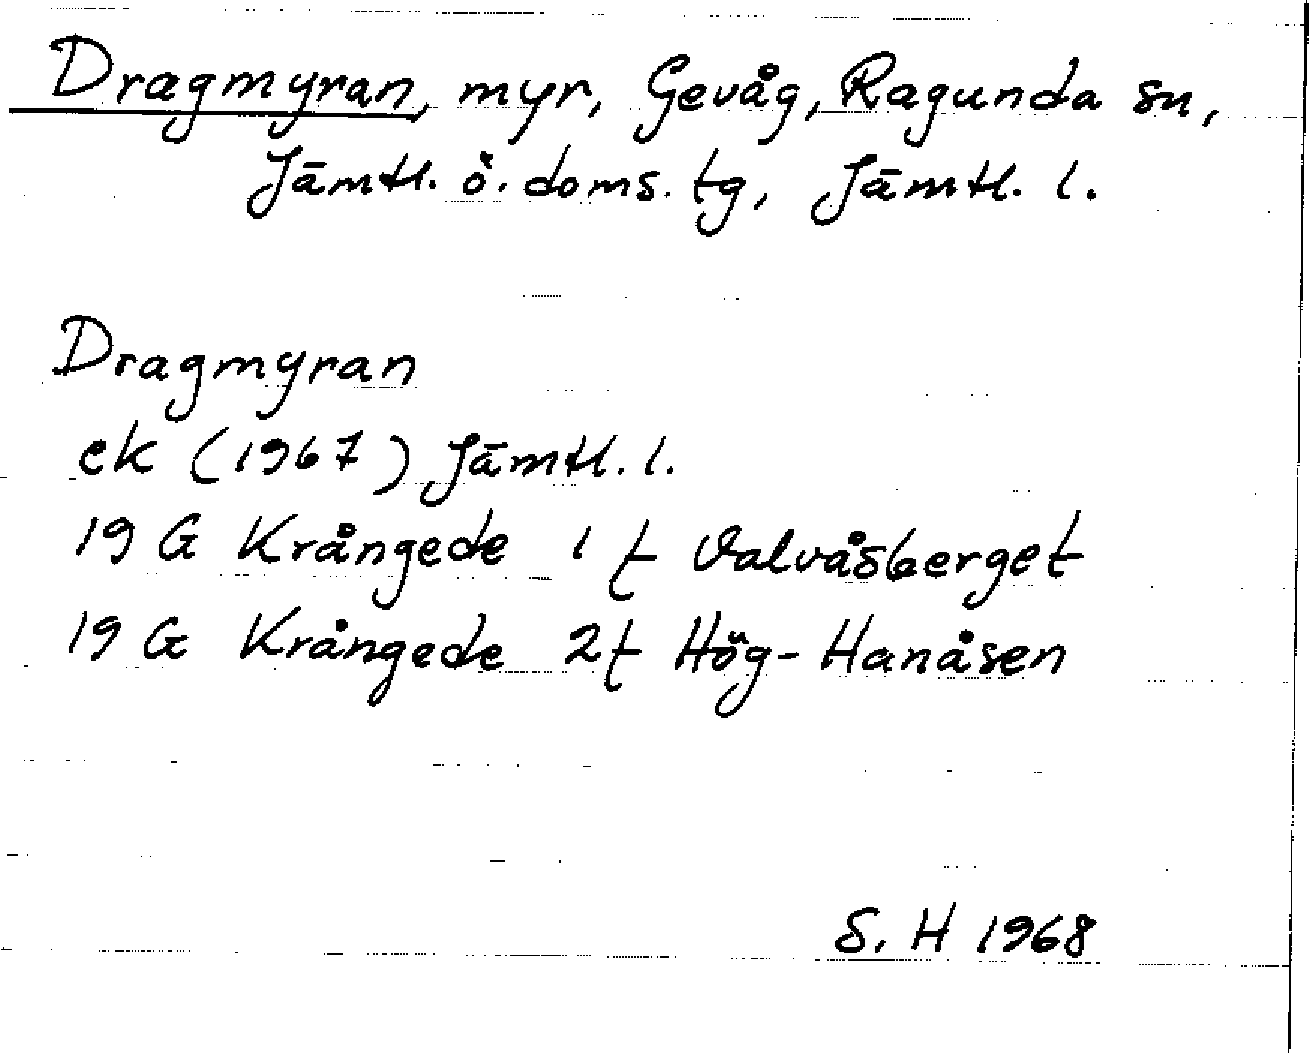 Dragmyran, myr, Gevåg, Ragunda sn,
Jämtl. ö. doms. tg, Jämtl. l.
Dragmyran
ek (1967) Jämtl. l.
19 G Krångede 1 f Valvåsberget
19 G Krångede 2 f Hög-Hanåsen
S. H 1968